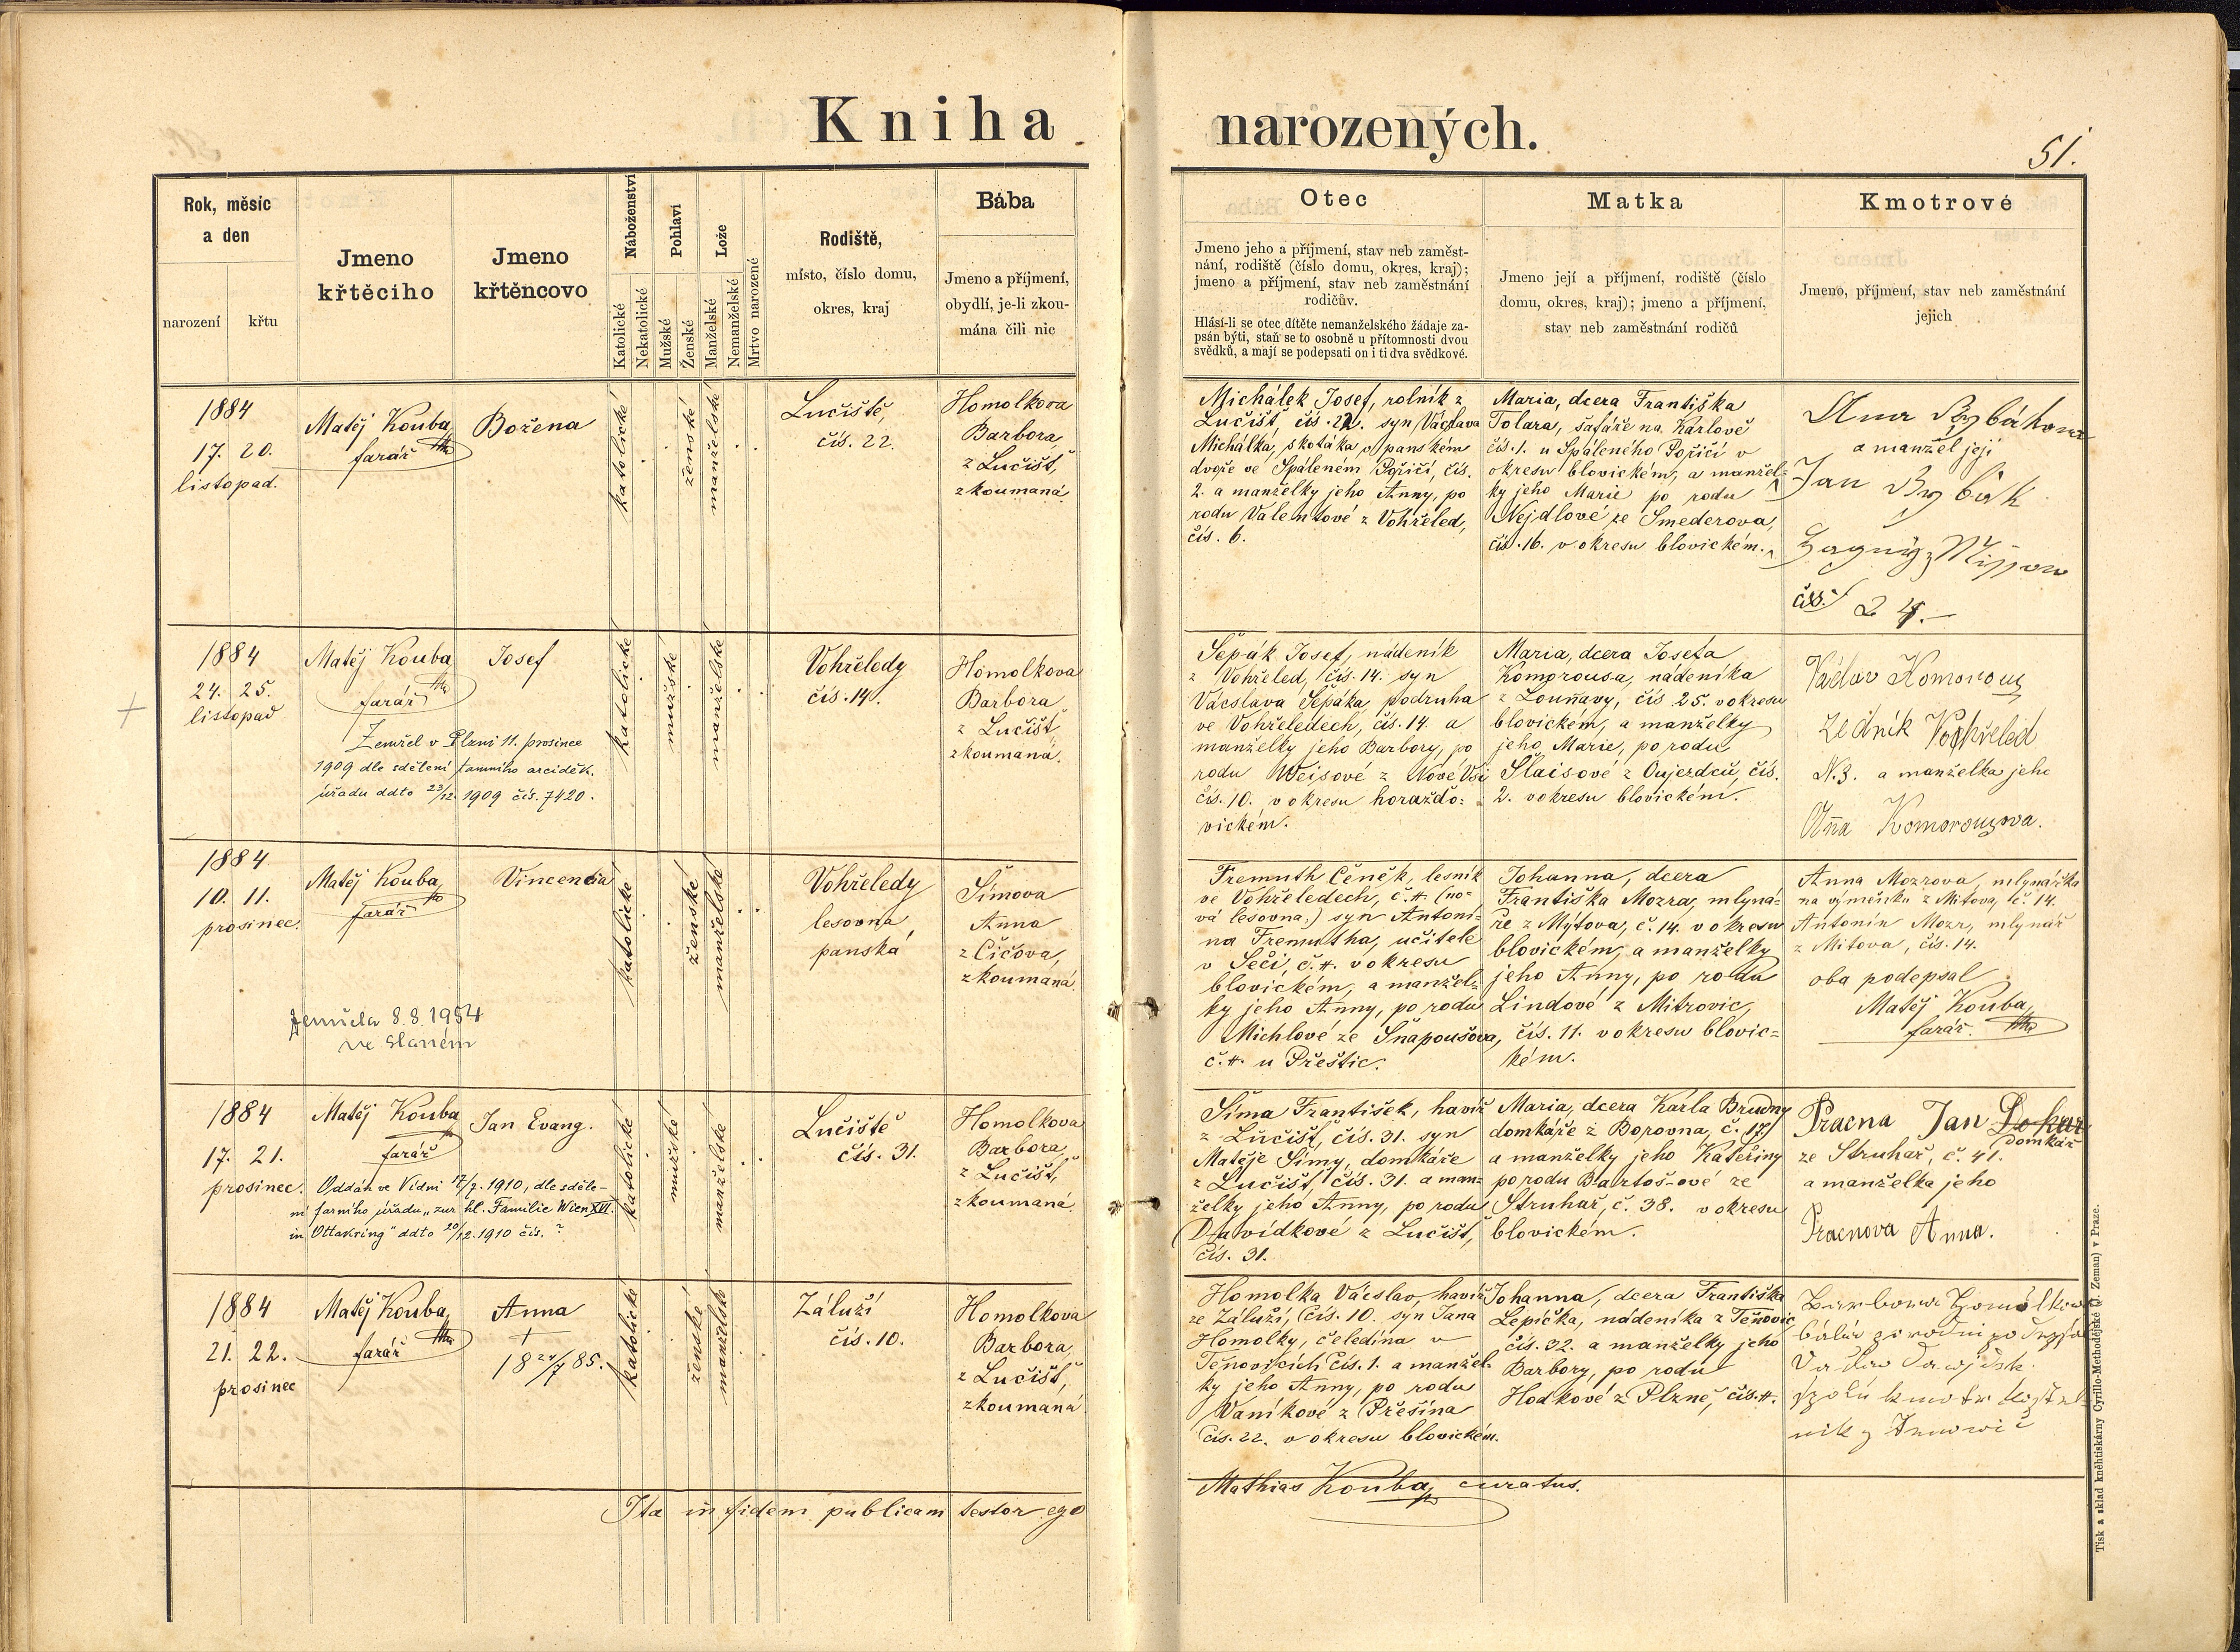 Kniha narozených.
51.
Rok, měsíc
a den
narození
křtu
Jmeno
křtěcího
Jmeno
křtěncovo
Náboženství
Katolické
Nekatolické
Pohlaví
Mužské
Ženské
Lože
Manželské
Nemanželské
Mrtvo narozené
Rodiště,
místo, číslo domu,
okres, kraj
Bába
Jmeno a příjmení,
obydlí, je-li zkou-
mána čili nic
Otec
Jmeno jeho a příjmení, stav neb zaměst-
nání, rodiště (číslo domu, okres, kraj);
jmeno a příjmení, stav neb zaměstnání
rodičův.
Hlásí-li se otec dítěte nemanželského žádaje za-
psán býti, staň se to osobně u přítomnosti dvou
svědků, a mají se podepsati on i ti dva svědkové.
Matka
Jmeno její a příjmení, rodiště (číslo
domu, okres, kraj); jmeno a příjmení,
stav neb zaměstnání rodičů
Kmotrové
Jmeno, příjmení, stav neb zaměstnání
jejich
1884
17. 20.
listopad.
Matěj Kouba,
farář
Božena
katolické
ženské
manželské
Lučiště,
čís. 22.
Homolkova
Barbora,
z Lučišť,
zkoumaná
Michálek Josef, rolník z
Lučišť, čís. 22. syn Václava
Michálka, skotáka v panském
dvoře ve Spáleném Poříčí, čís.
2. a manželky jeho Anny, po
rodu Valentové z Vohřeled,
čís. 6.
Maria, dcera Františka
Tolara, šafáře na Karlově
čís. 1. u Spáleného Poříčí v
okresu blovickém, a manžel-
ky jeho Marie po rodu
Nejdlové ze Smederova,
čís. 16. v okresu blovickém.
a manžel její
Jan
čís. 24.
1884
24. 25.
listopad
Matěj Kouba
farář
Josef
Zemřel v Plzni 11. prosince
1909 dle sdělení tamního arciděk.
úřadu ddto 23/12. 1909 čís. 7420.
katolické
mužské
manželské
Vohřeledy
čís. 14.
Homolkova
Barbora,
z Lučišť,
zkoumaná.
Šepák Josef, nádeník
z Vohřeled, čís. 14. syn
Vácslava Šepáka, podruha
ve Vohřeledech, čís. 14. a
manželky jeho Barbory, po
rodu Weisové z Nové Vsi
čís. 10. v okresu horažďo-
vickém.
Maria, dcera Josefa
Komprousa, nádeníka
z Louňavy, čís 25. v okresu
blovickém, a manželky
jeho Marie, po rodu
Šlaisové z Oujezdců, čís.
2. v okresu blovickém.
Václav Komorous
zedník Vohřeled
N. 3. a manželka jeho
Aňa Komorousova.
1884
10. 11.
prosinec.
Matěj Kouba,
farář
Vincencia
Zemřela 8.8.1954
ve Slaném
katolické
ženské
manželské
Vohřeledy
lesovna
panská
Šímova
Anna
z Číčova,
zkoumaná.
Fremuth Čeněk, lesník
ve Vohřeledech, č. #. (no-
vá lesovna.) syn Antoní-
na Fremutha, učitele
v Seči, č. #. v okresu
blovickém, a manžel-
ky jeho Anny, po rodu
Michlové ze Snapoušova,
č. #. u Přeštic.
Johanna, dcera
Františka Mozra, mlyná-
ře z Mýtova, č. 14. v okresu
blovickém, a manželky
jeho Anny, po rodu
Lindové z Mitrovic,
čís. 11. v okresu blovic-
kém.
Anna Mozrova, mlynářka
na výměnku z Mitova, č. 14.
Antonín Mozr, mlynář
z Mitova, čís. 14.
oba podepsal
Matěj Kouba,
farář.
1884
17. 21.
prosinec.
Matěj Kouba
farář
Jan Evang.
Oddán ve Vídni 17/7. 1910, dle sděle-
ní farního úřadu „zur hl. Familie Wien XVI.
in Ottakring" ddto 20/12. 1910 čís. ?
katolické
mužské
manželské
Lučiště
čís. 31.
Homolkova
Barbora,
z Lučišť,
zkoumaná.
Šíma František, havíř
z Lučišť, čís. 31. syn
Matěje Šímy, domkáře
z Lučišť čís. 31. a man-
želky jeho Anny, po rodu
Davídkové z Lučišť,
čís. 31.
Maria, dcera Karla Brudny
domkáře z Borovna, č. 17.
a manželky jeho Kateřiny
po rodu Bartoš-ové ze
Struhař, č. 38. v okresu
blovickém.
Pracna Jan
domkář
ze Struhař, č. 41.
a manželka jeho
Pracnova Anna.
1884
21. 22.
prosinec
Matěj Kouba,
farář
Anna
†
18 24/7 85.
katolické
ženské
manželské
Záluží
čís. 10.
Homolkova
Barbora,
z Lučišť,
zkoumaná
Homolka Vácslav, havíř
ze Záluží, čís. 10. syn Jana
Homolky, čeledína v
Těnovicích čís. 1. a manžel-
ky jeho Anny, po rodu
Vaníkové z Přešína
čís. 22. v okresu blovickém.
Johanna, dcera Františka
Lepíčka, nádeníka z Těňovic
čís. 32. a manželky jeho
Barbory, po rodu
Hodkové z Plzně, čís. #.
Ita in fidem publicam testor ego
Mathias Kouba, curatus.
Tisk a sklad kněhtiskárny Cyrillo-Methodějské (J. Zeman) v Praze.